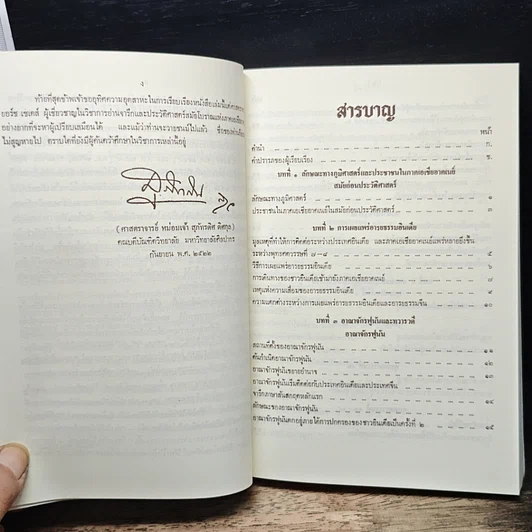 ง
ท้ายที่สุดข้าพเจ้าขออุทิศความอุตสาหะในการเรียบเรียงหนังสือเล่มนี้แด่ศาสตราจารย์
ยอร์ช เซเดส์ ผู้เชี่ยวชาญในวิชาการอ่านจารึกและประวัติศาสตร์สมัยโบราณแห่งภาคเอเชีย
อย่างยากที่จะหาผู้เปรียบเสมือนได้ และแม้ว่าท่านจะวายชนม์ไปแล้ว ชื่อของท่าน
ไม่สูญหายไป ตราบใดที่ยังมีผู้ศึกษาในวิชาการเหล่านี้อยู่
( ศาสตราจารย์ หม่อมเจ้า สุภัทรดิศ ดิศกุล )
คณบดีบัณฑิตวิทยาลัย มหาวิทยาลัยศิลปากร
กันยายน พ.ศ. ๒๕๒๒
สารบาญ
หน้า
คำนำ ก.
คำปรารภของผู้เรียบเรียง ข.
บทที่ ๑ ลักษณะทางภูมิศาสตร์และประชาชนในภาคเอเชียอาคเนย์
สมัยก่อนประวัติศาสตร์
ลักษณะทางภูมิศาสตร์ ๑
ประชาชนในภาคเอเชียอาคเนย์ในสมัยก่อนประวัติศาสตร์ ๓
บทที่ ๒ การเผยแพร่อารยธรรมอินเดีย
มูลเหตุที่ทำให้การติดต่อระหว่างประเทศอินเดีย และภาคเอเชียอาคเนย์แพร่หลายยิ่งขึ้น
ระหว่างพุทธศตวรรษที่ ๗-๘
วิธีการเผยแพร่อารยธรรมอินเดีย
การเดินทางของชาวอินเดียเข้ามายังภาคเอเชียอาคเนย์
เหตุแห่งความเสื่อมของอารยธรรมอินเดีย
ความแตกต่างระหว่างการเผยแพร่อารยธรรมอินเดียและอารยธรรมจีน ๑๐
บทที่ ๓ อาณาจักรฟูนันและทวารวดี
อาณาจักรฟูนัน
สถานที่ตั้งของอาณาจักรฟูนัน ๑๑
ต้นกำเนิดอาณาจักรฟูนัน ๑๒
อาณาจักรฟูนันขยายอำนาจ
อาณาจักรฟูนันเริ่มติดต่อกับประเทศอินเดียและประเทศจีน
จารึกภาษาสันสกฤตหลักแรก ๑๔
ลักษณะของอาณาจักรฟูนัน
อาณาจักรฟูนันตกอยู่ภายใต้การปกครองของชาวอินเดียเป็นครั้งที่ ๒ ๑๕